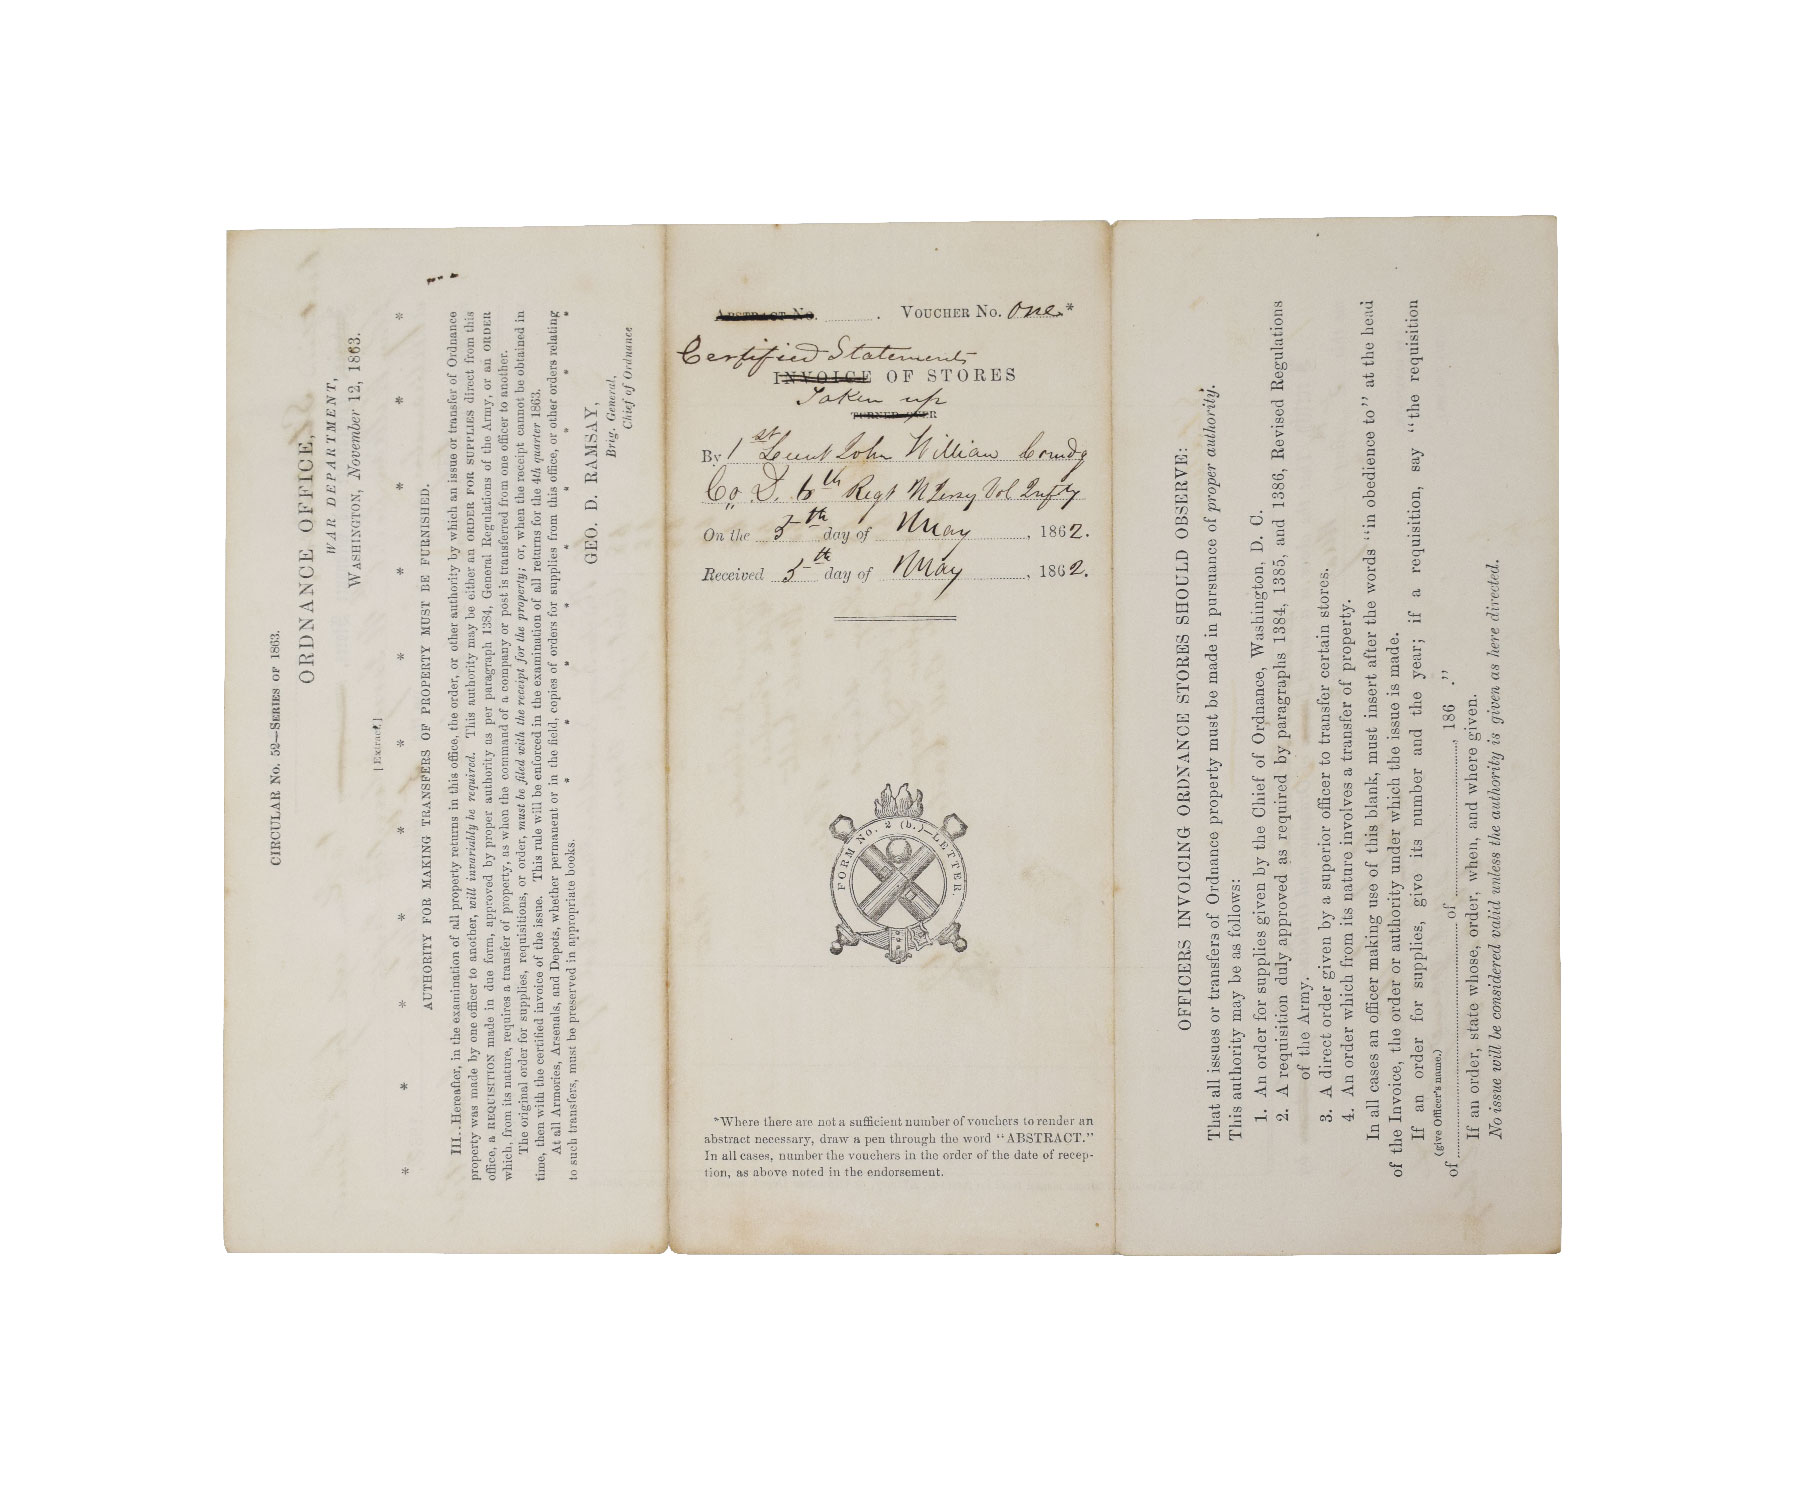 CIRCULAR No. 52—SERIES OF 1863.
ORDNANCE OFFICE,
WAR DEPARTMENT,
WASHINGTON, November 12, 1863.
[Extract.]
* * * * * * * * * * *
AUTHORITY FOR MAKING TRANSFERS OF PROPERTY MUST BE FURNISHED.
III..Hereafter, in the examination of all property returns in this office, the order, or other authority by which an issue or transfer of Ordnance
property was made by one officer to another, will invariably be required. This authority may be either an ORDER FOR SUPPLIES direct from this
office, a REQUISITION made in due form, approved by proper authority as per paragraph 1384, General Regulations of the Army, or an ORDER
which, from its nature, requires a transfer of property, as when the command of a company or post is transferred from one officer to another.
The original order for supplies, requisitions, or order, must be filed with the receipt for the property; or, when the receipt cannot be obtained in
time, then with the certified invoice of the issue. This rule will be enforced in the examination of all returns for the 4th quarter 1863.
At all Armories, Arsenals, and Depots, whether permanent or in the field, copies of orders for supplies from this office, or other orders relating
to such transfers, must be preserved in appropriate books.
* * * * * * * * *
GEO. D. RAMSAY,
Brig. General,
Chief of Ordnance
ABSTRACT No. . VOUCHER No. One*
Certified Statements
INVOICE OF STORES
Taken up
TURNED OVER
By 1st Lieut John William Comdg
Co. D. 6th Regt N Jersy Vol Infty
On the 5th day of May, 1862.
Received 5th day of May, 1862.
FORM No. 2 (b.)—LETTER.
*Where there are not a sufficient number of vouchers to render an
abstract necessary, draw a pen through the word "ABSTRACT."
In all cases, number the vouchers in the order of the date of recep-
tion, as above noted in the endorsement.
OFFICERS INVOICING ORDNANCE STORES SHOULD OBSERVE:
That all issues or transfers of Ordnance property must be made in pursuance of proper authority.
This authority may be as follows:
1. An order for supplies given by the Chief of Ordnance, Washington, D. C.
2. A requisition duly approved as required by paragraphs 1384, 1385, and 1386, Revised Regulations
of the Army.
3. A direct order given by a superior officer to transfer certain stores.
4. An order which from its nature involves a transfer of property.
In all cases an officer making use of this blank, must insert after the words "in obedience to" at the head
of the Invoice, the order or authority under which the issue is made.
If an order for supplies, give its number and the year; if a requisition, say "the requisition
(give Officer's name.)
of of , 186 ."
If an order, state whose, order, when, and where given.
No issue will be considered valid unless the authority is given as here directed.